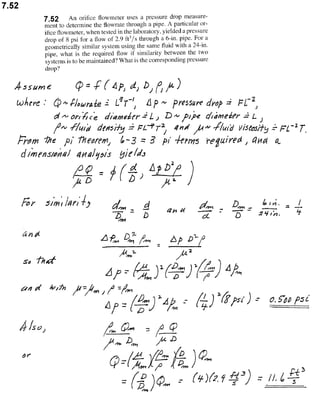 7.52
7.52 An orifice flowmeter uses a pressure drop measure-
ment to determine the flowrate through a pipe. A particular or-
ifice flowmeter, when tested in the laboratory, yielded a pressure
drop of 8 psi for a flow of 2.9 ft³/s through a 6-in. pipe. For a
geometrically similar system using the same fluid with a 24-in.
pipe, what is the required flow if similarity between the two
systems is to be maintained? What is the corresponding pressure
drop?
Assume Q = f (Δp, d, D, ρ, μ)
where: Q ~ flowrate ≐ L³T⁻¹, Δp ~ pressure drop ≐ FL⁻²,
d ~ orifice diameter ≐ L, D ~ pipe diameter ≐ L,
ρ ~ fluid density ≐ FL⁻⁴T², and μ ~ fluid viscosity ≐ FL⁻²T.
From the pi theorem, 6-3 = 3 pi terms required, and a
dimensional analysis yields
ρQ/μD = φ (d/D, Δp D²ρ/μ²)
For similarity dm/Dm = d/D and dm/d = Dm/D = 6 in./24 in. = 1/4
and
Δpm Dm² ρm/μm² = Δp D² ρ/μ²
so that
Δp = (μ/μm)² (Dm/D)² (ρm/ρ) Δpm
and with μ = μm, ρ = ρm
Δp = (Dm/D)² Δpm = (1/4)² (8 psi) = 0.500 psi
Also,
ρm Qm/μm Dm = ρ Q/μ D
or
Q = (μ/μm)(ρm/ρ)(D/Dm) Qm
= (D/Dm) Qm = (4)(2.9 ft³/s) = 11.6 ft³/s